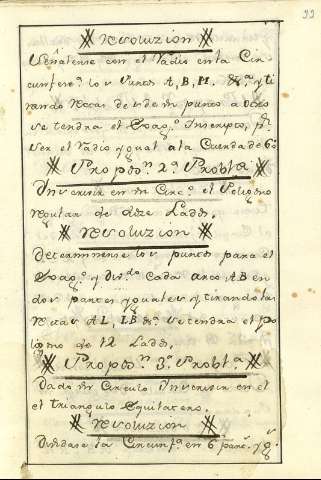 99
Resoluzion
Señalense con el Radio en la Cir-
cunfer.ª los Puntos A, B, M. &.ª y ti
rando Rectas de un punto a otro
se tendra el Exag.º Inscripto, p.r
ser el Radio ygual a la Cuerda de 60
Propos.n 2.ª Probl.a
Inscrivir en un Circ.º el Poligono
regular de doze Lados,
Resoluzion
Determinense los puntos para el
Exag.º y div.do cada arco AB en
dos partes yguales y tirando las
Rectas AL, LB &.ª se tendra el po
ligono de 12 Lados,
Propos.n 3.ª Probl.a
Dado un Circulo Inscrivir en el
el triangulo Equilatero.
Resoluzion
Dividase la Circunf.ª en 6 part.s y